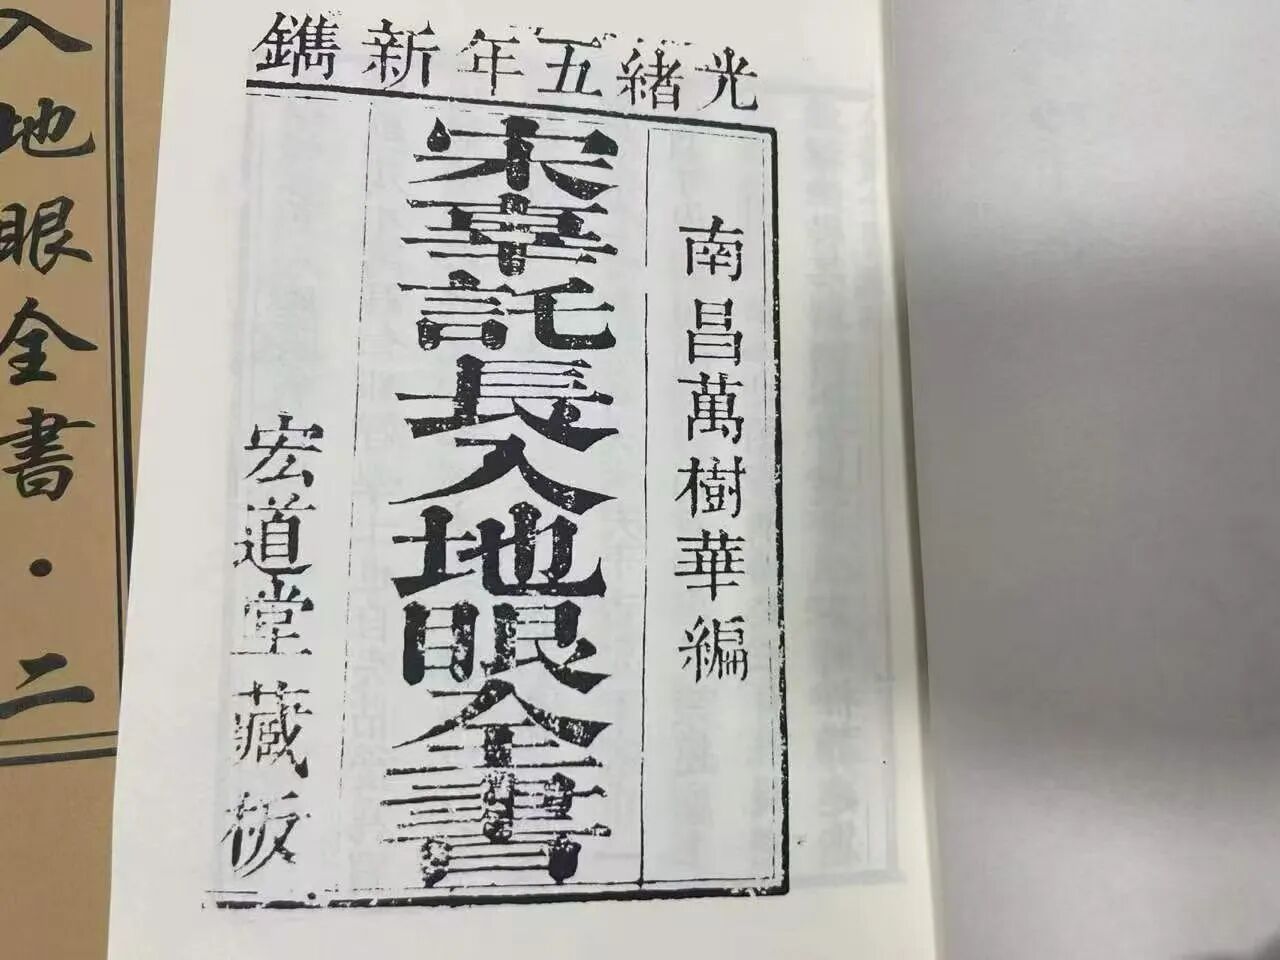 光緒五年新鐫
南昌萬樹華編
宋辜託長入地眼全書
宏道堂藏板
入地眼全書·二